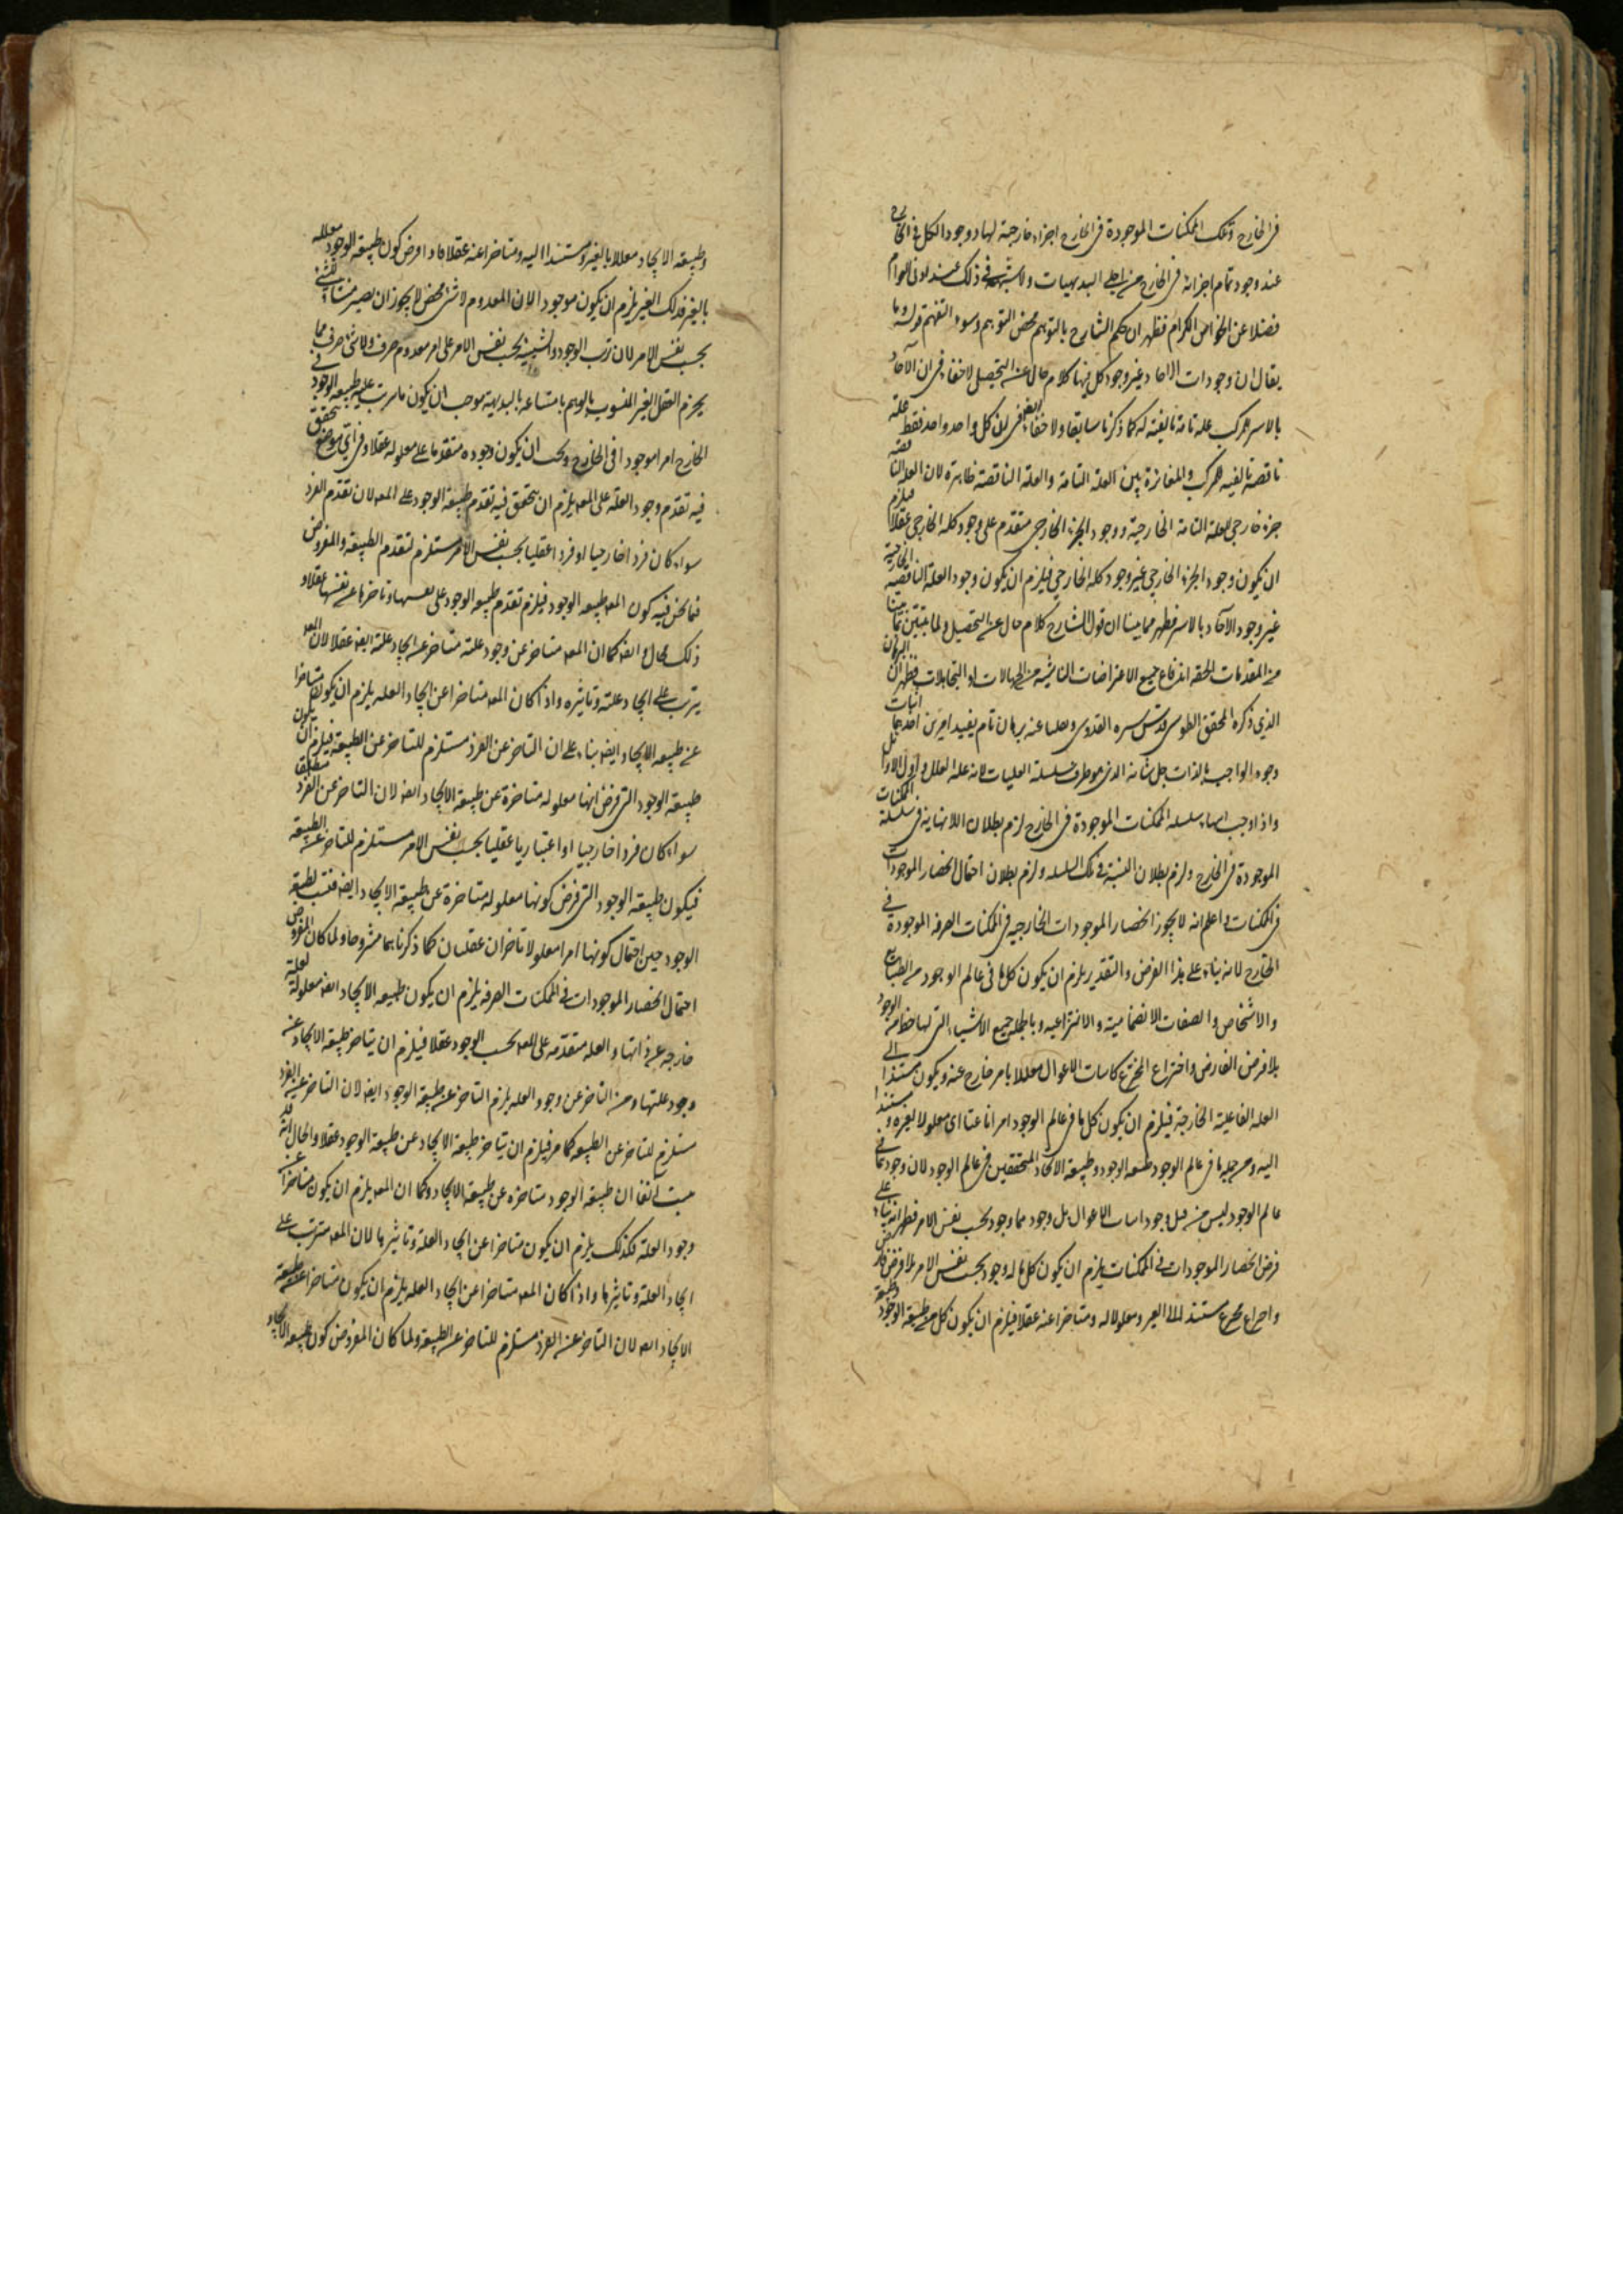 في الخارج وتلك الممكنات الموجودة في الخارج اجزاء خارجية لها ووجود الكل في الخارج
عند وجود تمام اجزائه في الخارج من اجلى البديهيات ولا شبهة في ذلك عند ادنى العوام
فضلا عن الخواص الكرام فظهر ان حكم الشارح بالتوهم محض التوهم وسوء التفهم قوله وما
يقال ان وجودات الاحاد غير وجود كل منها كلام خال عن التحصيل لا خفاء في ان الآحاد
بالاسر مركب علة تامة بالغيته له كما ذكرنا سابقا ولا خفاء ايضا في ان كل واحد واحد فقط علة
ناقصة بالغيه المركب والمغايرة بين العلة التامة والعلة الناقصة ظاهرة لان العلة الناقصة
جزء خارجي للعلة التامة الخارجية ووجود الجزء الخارجي متقدم على وجود كله الخارجي عقلا فيلزم
ان يكون وجود الجزء الخارجي غير وجود كله الخارجي فيلزم ان يكون وجود العلة الناقصة الخارجية
غير وجود الآحاد بالاسر فظهر مما بينا ان قول الشارح كلام خال عن التحصيل ولما تبين مما بينا
من المقدمات الحقه اندفاع جميع الاعتراضات الناشية من الجهالات او التجاهلات فظهر ان البرهان
الذي ذكره المحقق الطوسي قدس سره القدوسي وصلنا عنه برهان تام يفيد امرين احدهما اثبات
وجود الواجب بالذات جل شانه الذي هو طرف سلسلة العليات لانه علة العلل واول الاوائل
واذا وجب انتهاء سلسله الممكنات الموجودة في الخارج لزم بطلان اللانهاية في سلسلة الممكنات
الموجودة في الخارج ولزم بطلان النسبة في تلك السلسله ولزم بطلان احتمال انحصار الموجودات
في الممكنات واعلم انه لا يجوز انحصار الموجودات الخارجيه في الممكنات الصرفه الموجودة في
الخارج لانه بناء على هذا الفرض والتقدير يلزم ان يكون كل ما في عالم الوجود من الطبايع
والاشخاص والصفات الانضمامية والانتزاعيه وبالجمله جميع الاشياء التي لها حظ من الوجود
بلا فرض الفارض واختراع المخترع كانياب الاغوال معللا بامر خارج عنه ويكون مستندا الى
العله الفاعلية الخارجة فيلزم ان يكون كل ما في عالم الوجود امرا ناعتا اى معلولا لغيره ومستندا
اليه ومن جملة ما في عالم الوجود طبيعه الوجود وطبيعة الايجاد المتحققين في عالم الوجود لان وجودهما في
عالم الوجود ليس من قبل وجود انياب الاغوال بل وجودهما وجود بحسب نفس الامر فظهر انه بناء على
فرض انحصار الموجودات في الممكنات يلزم ان يكون كل ما له وجود بحسب نفس الامر بلا فرض فارض
واختراع مخترع مستندا الى الغير ومعلولا له ومتاخرا عنه عقلا فيلزم ان يكون كل من طبيعة الوجود وطبيعة
وطبيعة الايجاد معللا بالغير ومستندا اليه ومتاخرا عنه عقلا فاذا فرض كون طبيعة الوجود معلله
بالغير فذلك الغير يلزم ان يكون موجودا لان المعدوم لا شئ محض لا يجوز ان يصير منشاء لشئ
بحسب نفس الامر لان ترتب الوجود والشيئية بحسب نفس الامر على امر معدوم صرف ولا شئ صرف مما
يجزم العقل الغير المنسوب بالوهم بامتناعه بالبديهة موجب ان يكون ما يترتب عليه طبيعة الوجود في
الخارج امرا موجودا في الخارج ويجب ان يكون وجوده متقدما على معلوله عقلا وفي اى موضع تحقق
فيه تقدم وجود العلة على المعلول يلزم ان يتحقق فيه تقدم طبيعة الوجود على المعلول لان تقدم الفرد
سواء كان فردا خارجيا او فردا عقليا بحسب نفس الامر مستلزم لتقدم الطبيعة والمفروض
فيما نحن فيه كون المعلول طبيعه الوجود فيلزم تقدم طبيعه الوجود على نفسها وتاخرها عن نفسها عقلا و
ذلك محال وايضا كما ان المعلول متاخر عن وجود علته متاخر عن ايجاد علته ايضا عقلا لان المعلول
يترتب على ايجاد علته وتاثيره واذا كان المعلول متاخرا عن ايجاد العله يلزم ان يكون متاخرا
عن طبيعه الايجاد ايضا بناء على ان التاخر عن الفرد مستلزم للتاخر عن الطبيعة فيلزم ان يكون
طبيعة الوجود التي فرض انها معلوله متاخرة عن طبيعة الايجاد ايضا لان التاخر عن الفرد مطلقا
سواء كان فردا خارجيا او اعتباريا عقليا بحسب نفس الامر مستلزم للتاخر عن الطبيعة
فيكون طبيعة الوجود التي فرض كونها معلوله متاخرة عن طبيعة الايجاد ايضا فثبت لطبيعة
الوجود حين احتمال كونها امرا معلولا تاخران عقليان كما ذكرناهما مشروحا ولما كان المفروض
احتمال انحصار الموجودات في الممكنات الصرفه يلزم ان يكون طبيعه الايجاد ايضا معلولة لعلة
خارجه عن ذاتها والعله متقدمه على المعلول بحسب الوجود عقلا فيلزم ان يتاخر طبيعة الايجاد عن
وجود علتها ومن التاخر عن وجود العله يلزم التاخر عن طبيعة الوجود ايضا لان التاخر عن الفرد
مستلزم للتاخر عن الطبيعه كما مر فيلزم ان يتاخر طبيعة الايجاد عن طبيعة الوجود عقلا والحال انه قد
ثبت آنفا ان طبيعه الوجود متاخره عن طبيعة الايجاد وكما ان المعلول يلزم ان يكون متاخرا عن
وجود العلة فكذلك يلزم ان يكون متاخرا عن ايجاد العلة وتاثيرها لان المعلول مترتب على
ايجاد العلة وتاثيرها واذا كان المعلول متاخرا عن ايجاد العله يلزم ان يكون متاخرا عن طبيعة
الايجاد ايضا لان التاخر عن الفرد مستلزم للتاخر عن الطبيعة ولما كان المفروض كون طبيعة الايجاد